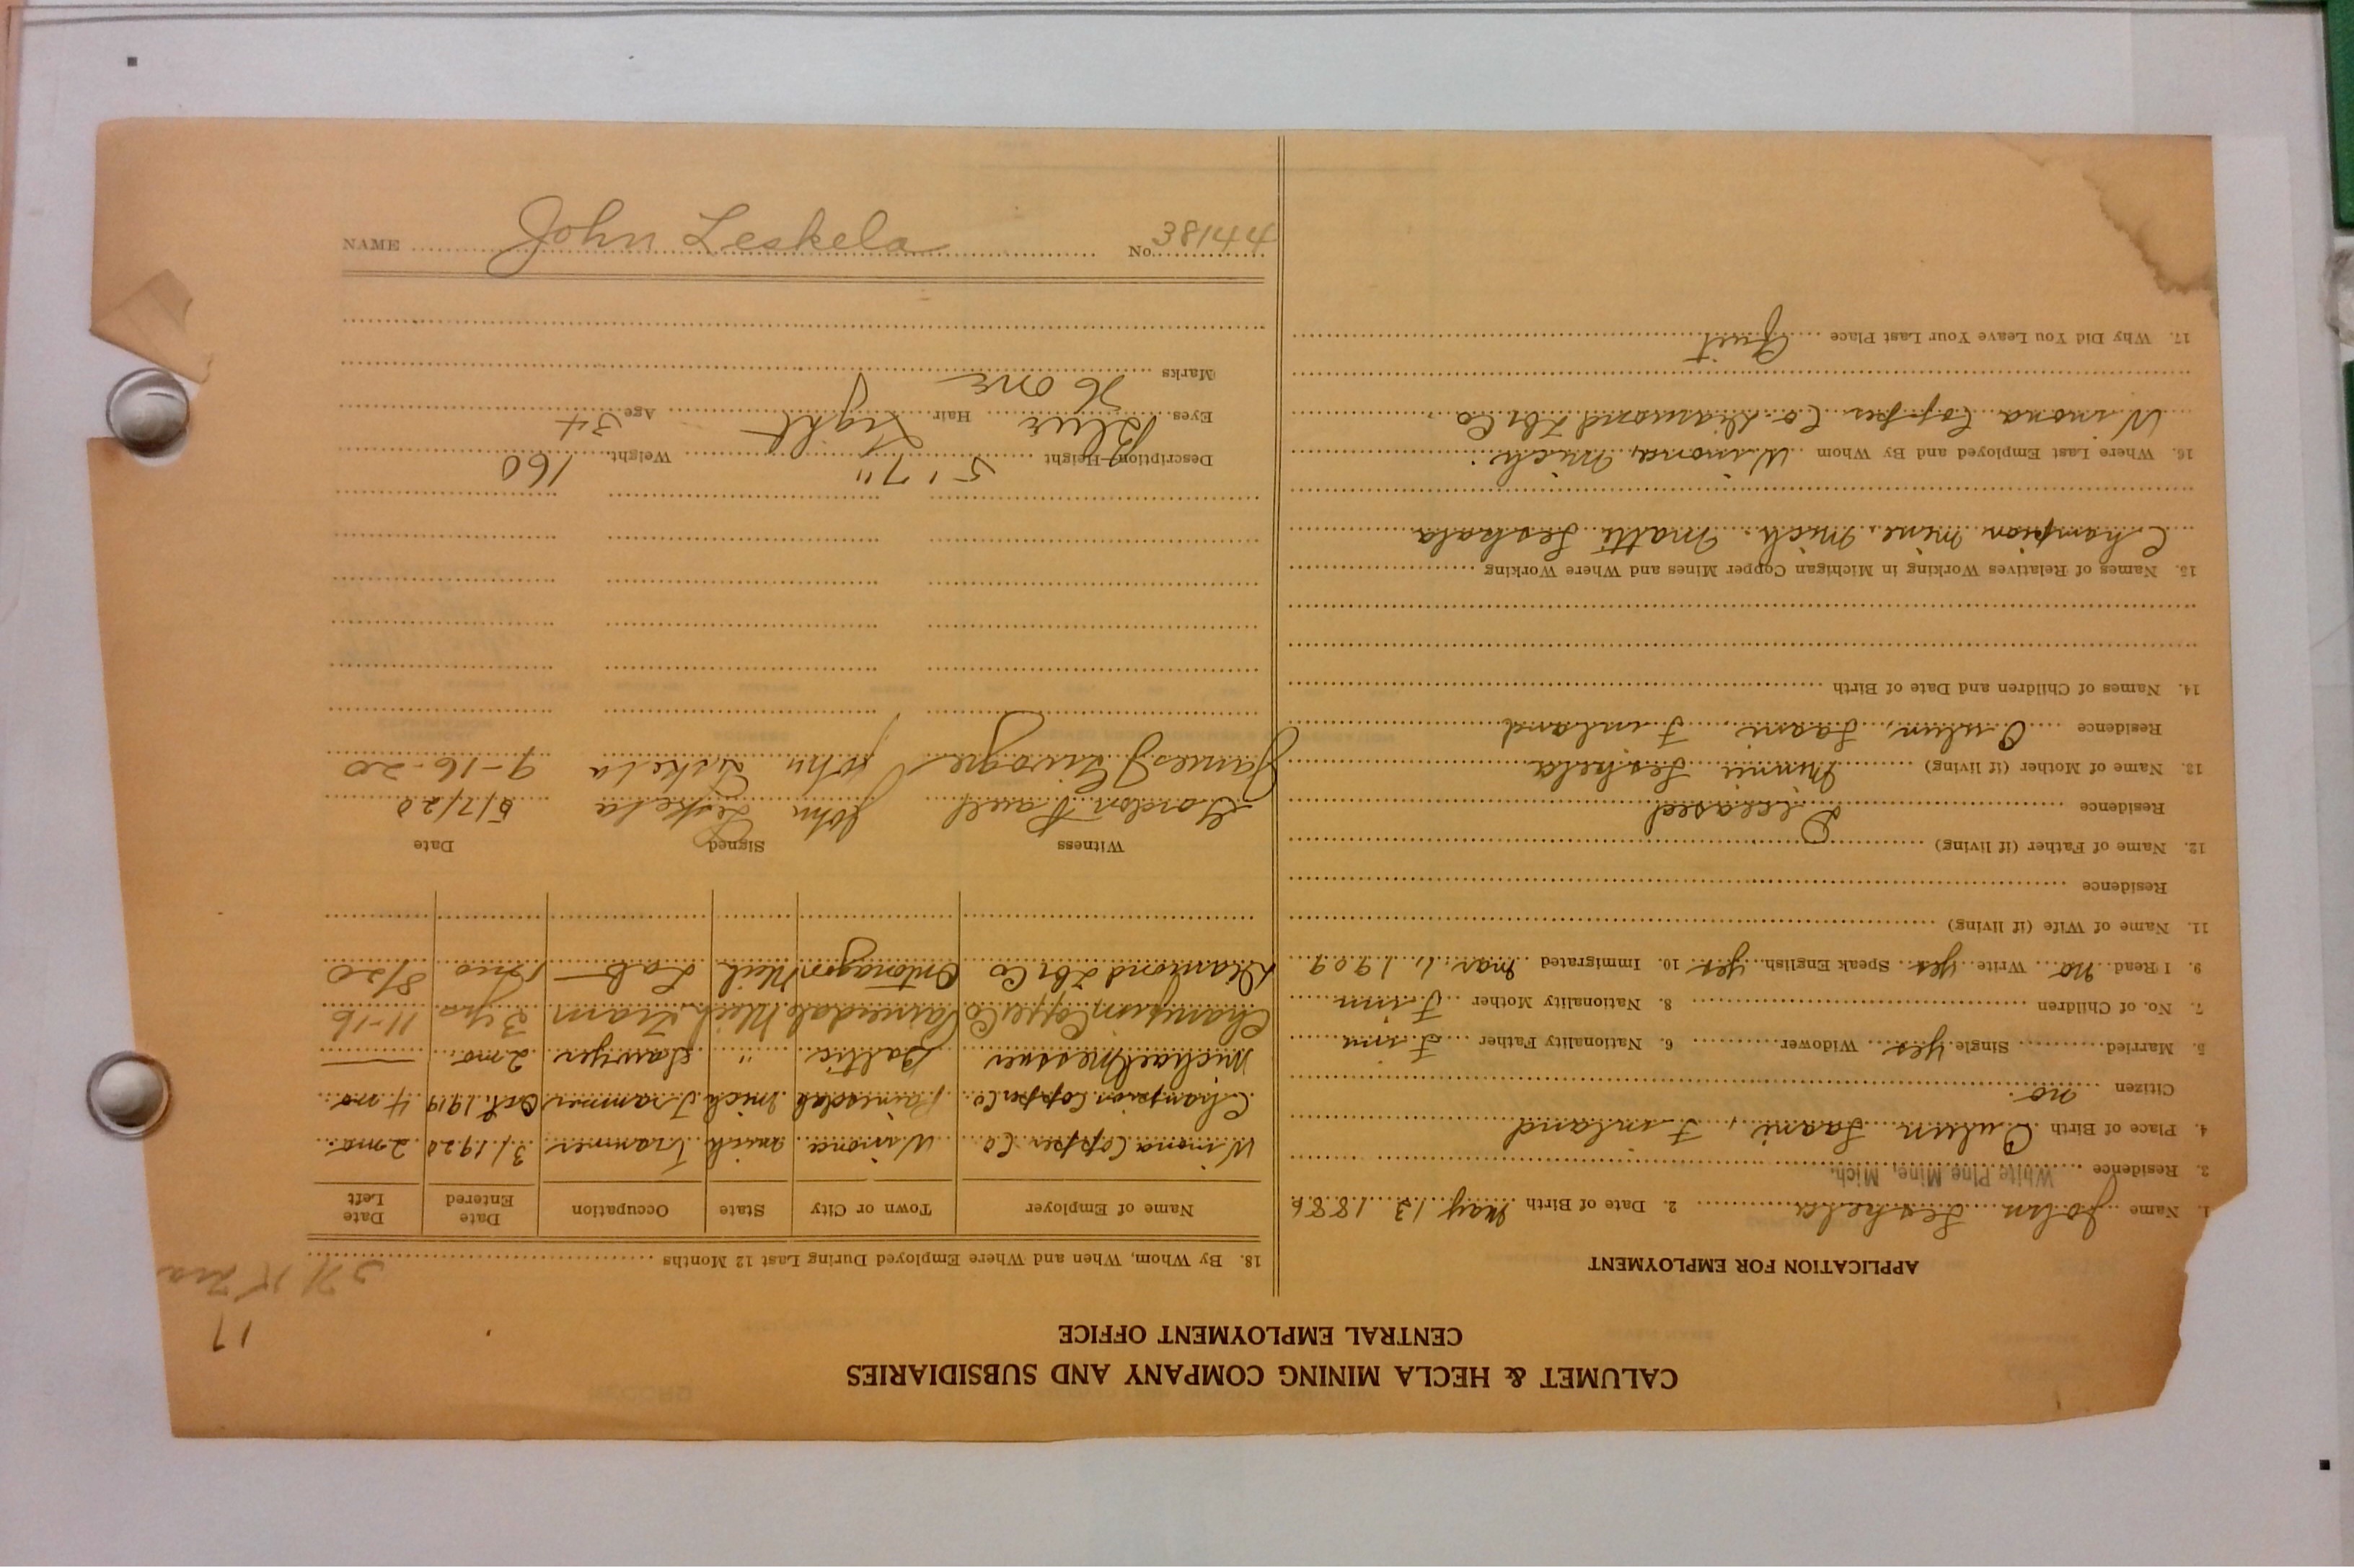 CALUMET & HECLA MINING COMPANY AND SUBSIDIARIES
CENTRAL EMPLOYMENT OFFICE
APPLICATION FOR EMPLOYMENT
1. Name John Leskela 2. Date of Birth May 13 1886
3. Residence White Pine Mine, Mich.
4. Place of Birth Oulun Laani, Finland
Citizen no.
5. Married Single yes Widower 6. Nationality Father Finn
7. No. of Children 8. Nationality Mother Finn
9. I Read no Write yes Speak English yes 10. Immigrated Mar. 1, 1909
11. Name of Wife (if living)
Residence
12. Name of Father (if living) Deceased
Residence
13. Name of Mother (if living) Minnie Leskela
Residence Oulun, Laani, Finland
14. Names of Children and Date of Birth
15. Names of Relatives Working in Michigan Copper Mines and Where Working
Champion Mine, Mich. Matti Leskala
16. Where Last Employed and By Whom Winona, Mich.
Winona Copper Co. Diamond Lbr Co
17. Why Did You Leave Your Last Place Quit
17
18. By Whom, When and Where Employed During Last 12 Months
Name of Employer Town or City State Occupation Date Entered Date Left
Winona Copper Co Winona Mich Trammer 3/1920 2 mo.
Champion Copper Co. Painesdale Mich Trammer Oct. 1919 4 mo
Michael Messner Baltic " Sawyer 2 mo. —
Champion Copper Co Painesdale Mich Tram 3 yrs 11-16
Diamond Lbr Co Ontonagon Mich Lab 8/20
Witness Signed Date
Gordon John Leskela 5/7/20
James John Leskela 9-16-20
Description—Height 5'7" Weight 160
Eyes Blue Hair Light Age 34
Marks None
NAME John Leskela No. 38144